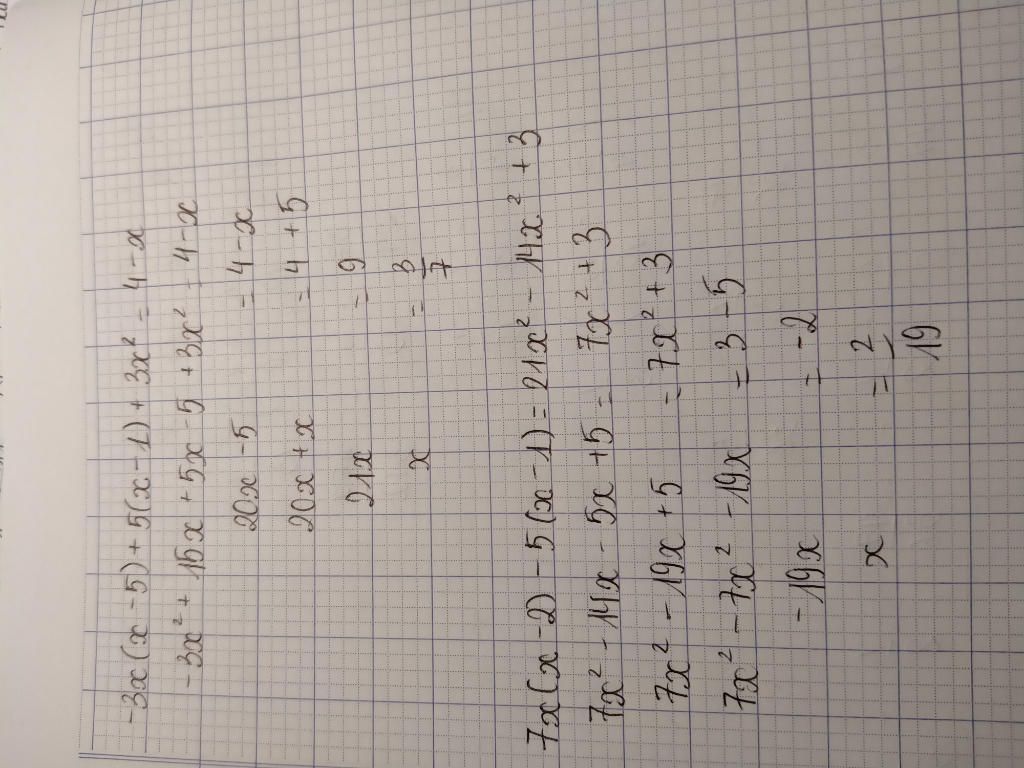 -3x(x-5)+5(x-1)+3x² = 4-x
-3x²+15x+5x-5+3x² = 4-x
20x-5 = 4-x
20x+x = 4+5
21x = 9
x = 3/7
7x(x-2)-5(x-1)=21x²-14x²+3
7x²-14x-5x+5 = 7x²+3
7x²-19x+5 = 7x²+3
7x²-7x²-19x = 3-5
-19x = -2
x = 2/19